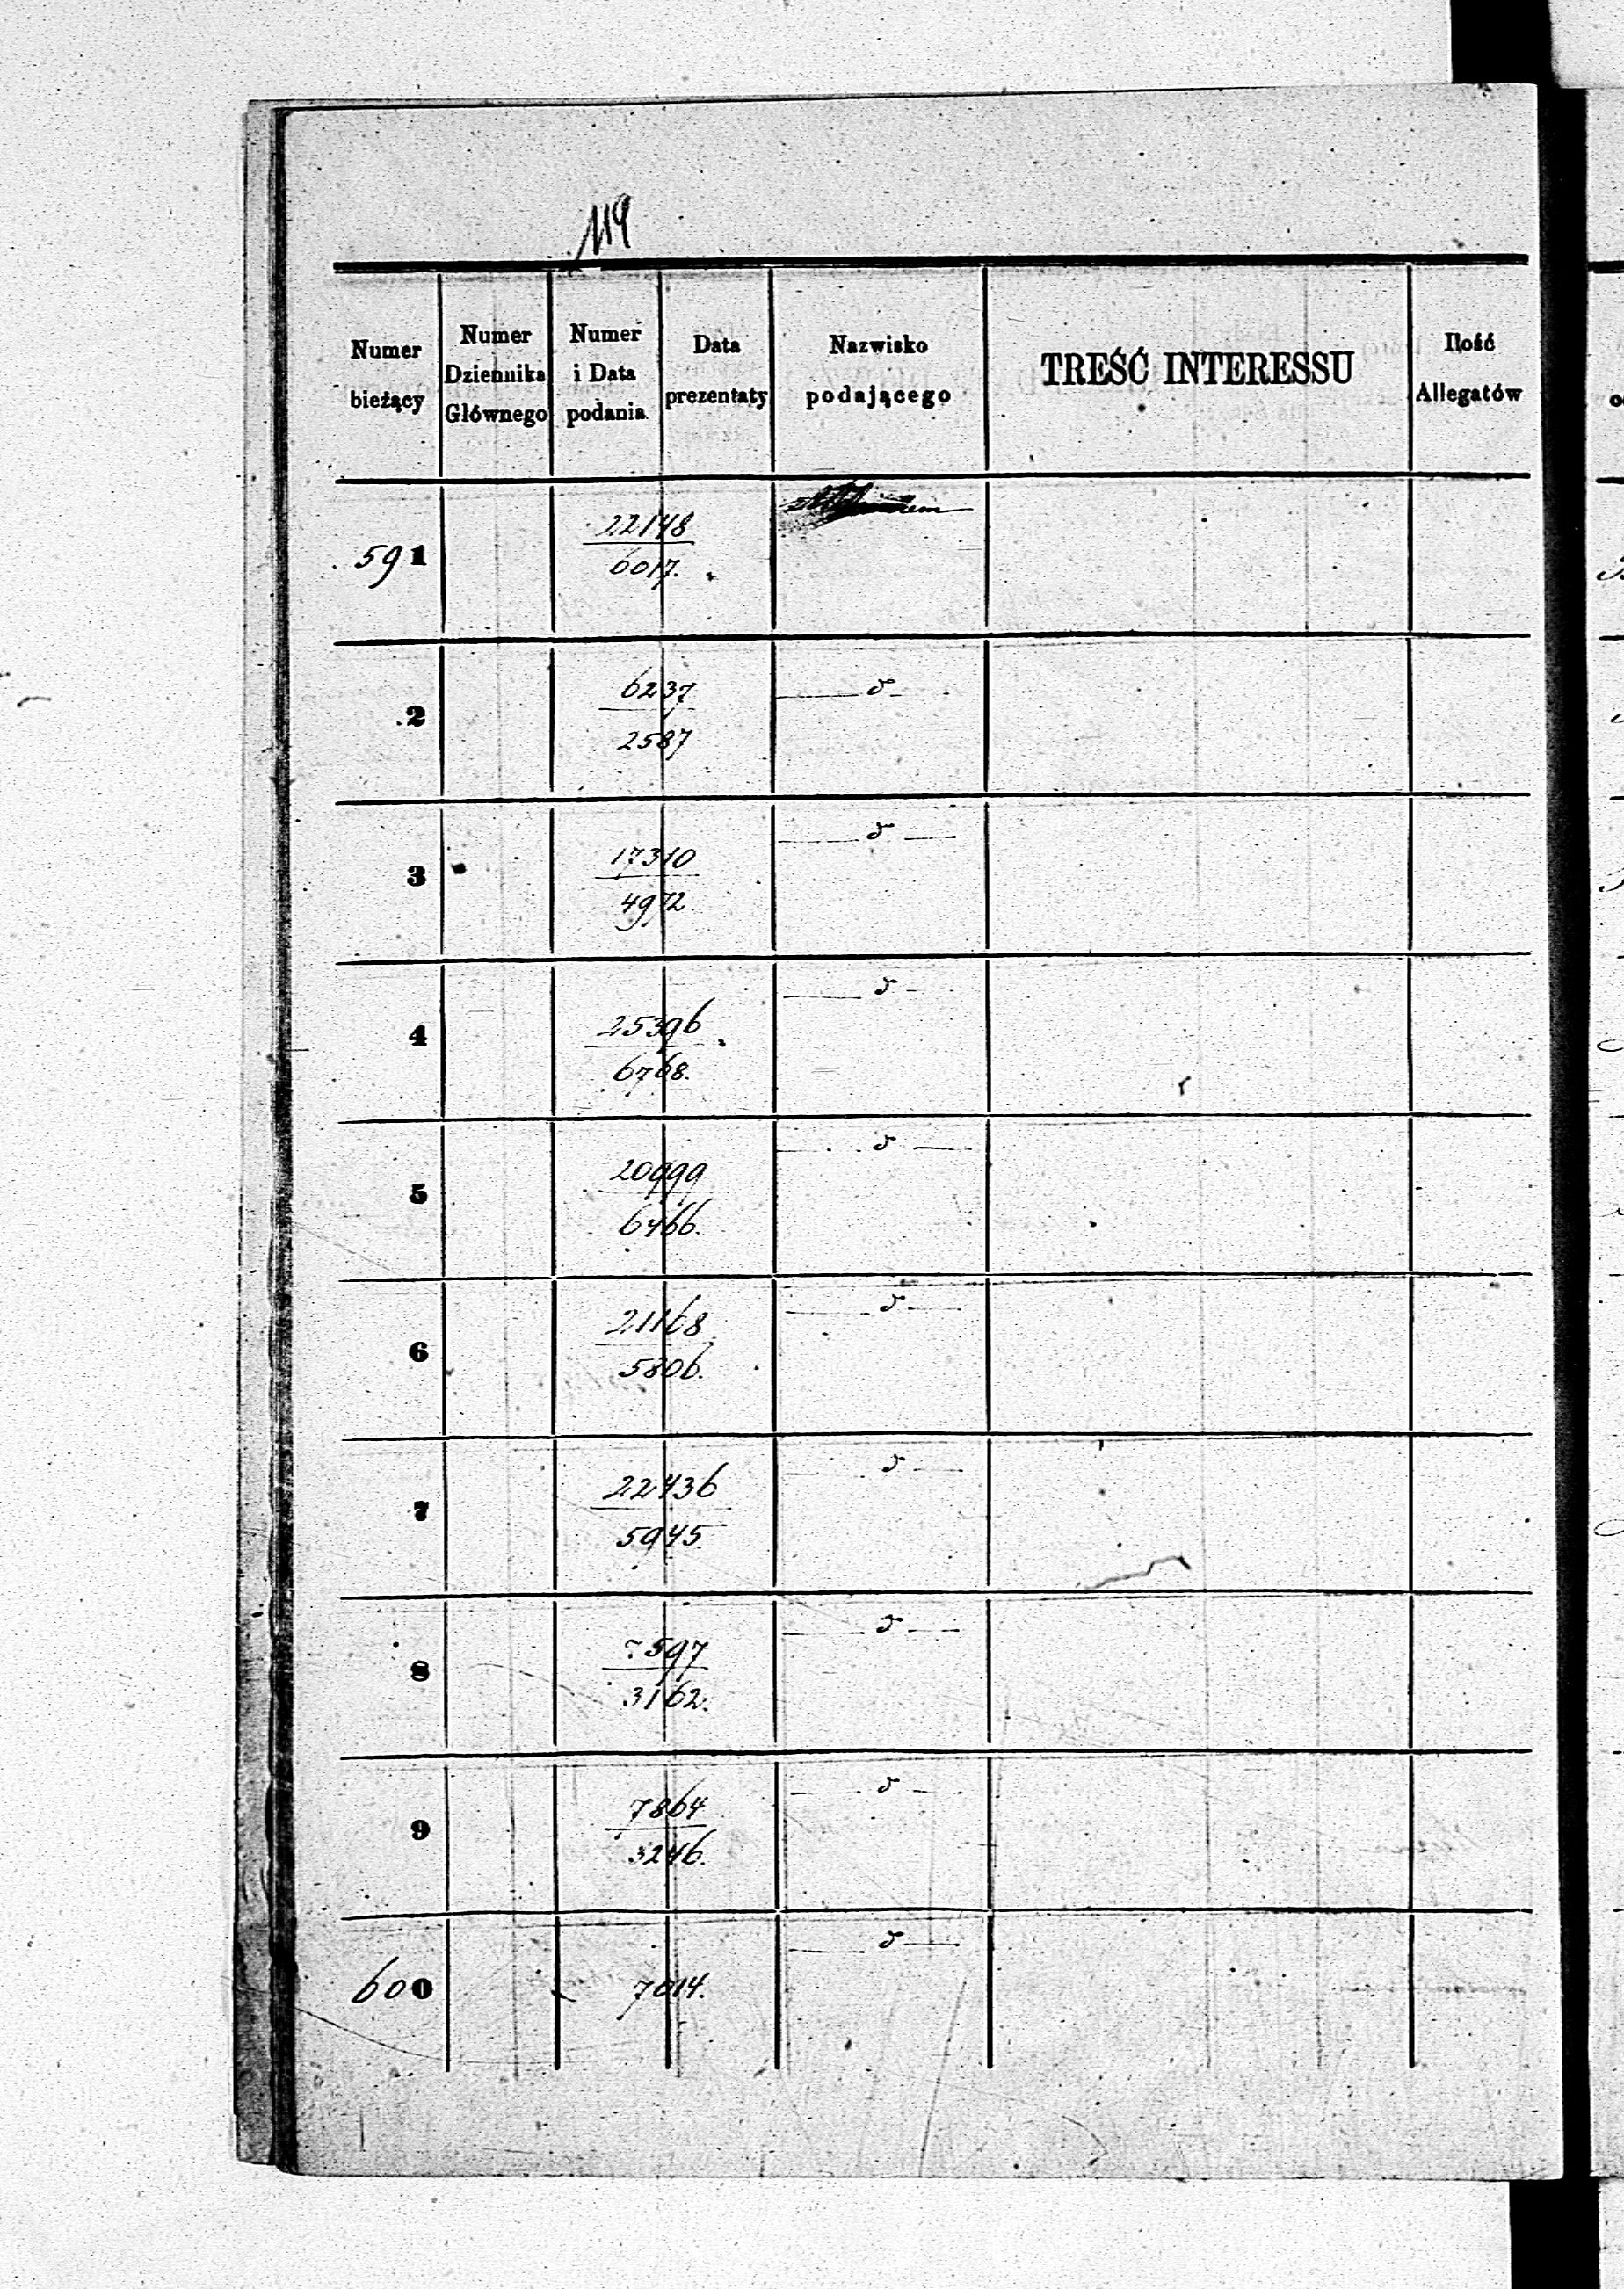 119
Numer bieżący
Numer Dziennika Głównego
Numer i Data podania
Data prezentaty
Nazwisko podającego
TREŚĆ INTERESSU
Ilość Allegatów
591
22148
6017.
2
6237
2587
3
17310
4972
4
25396
6768.
5
20999
6466.
6
21168
5806.
7
22436
5945.
8
7597
3162.
9
7864
3246.
600
7014.